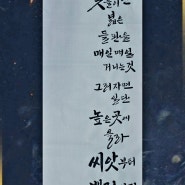 넓은
들판을
매일매일
거니는것
그러자면
일단
높은곳에
올라
씨앗부터